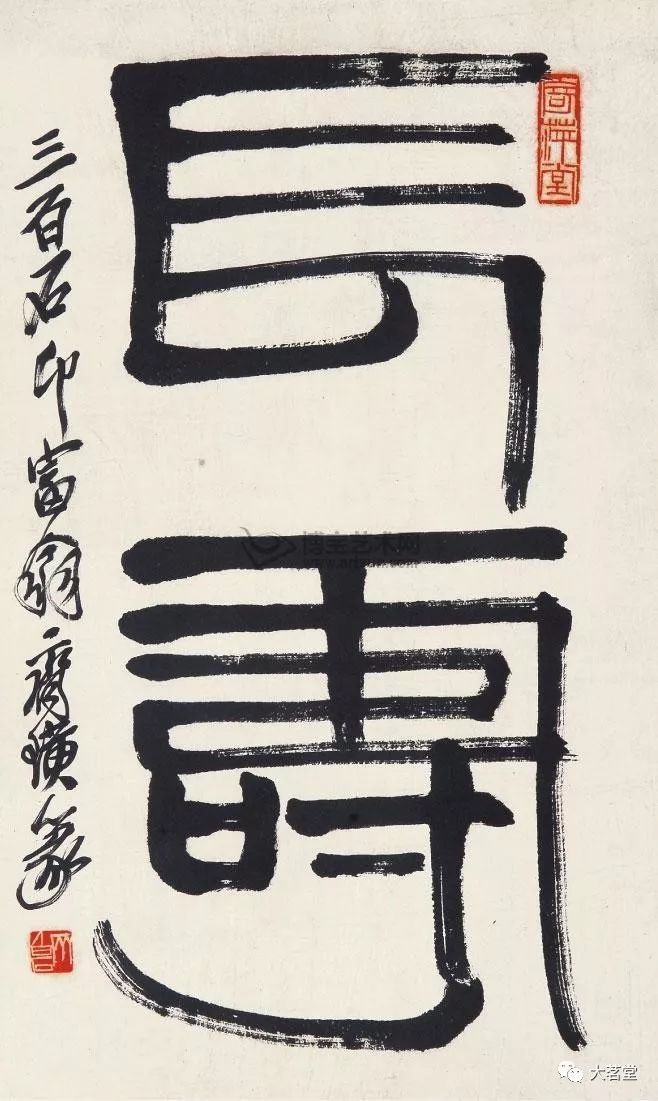 長壽
三百石印富翁齊璜篆
博宝艺术网
大茗堂